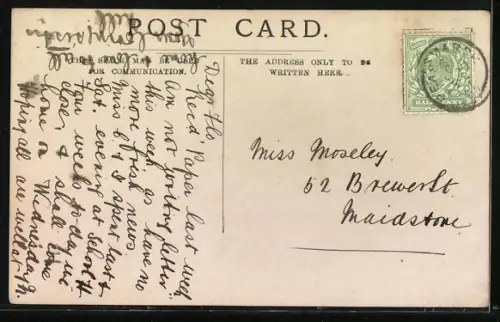 POST CARD.
FOR COMMUNICATION.
THE ADDRESS ONLY TO BE
WRITTEN HERE.
HALFPENNY
Dear Flo
Recd Paper last week
Am not posting letter
this week as have no
more fresh news.
Miss B & I spent last
Sat. evening at School H
four weeks to-day we
close, & shall come
home on Wednesday
Hoping all are well at H.
Miss Moseley.
52 Brewer St.
Maidstone